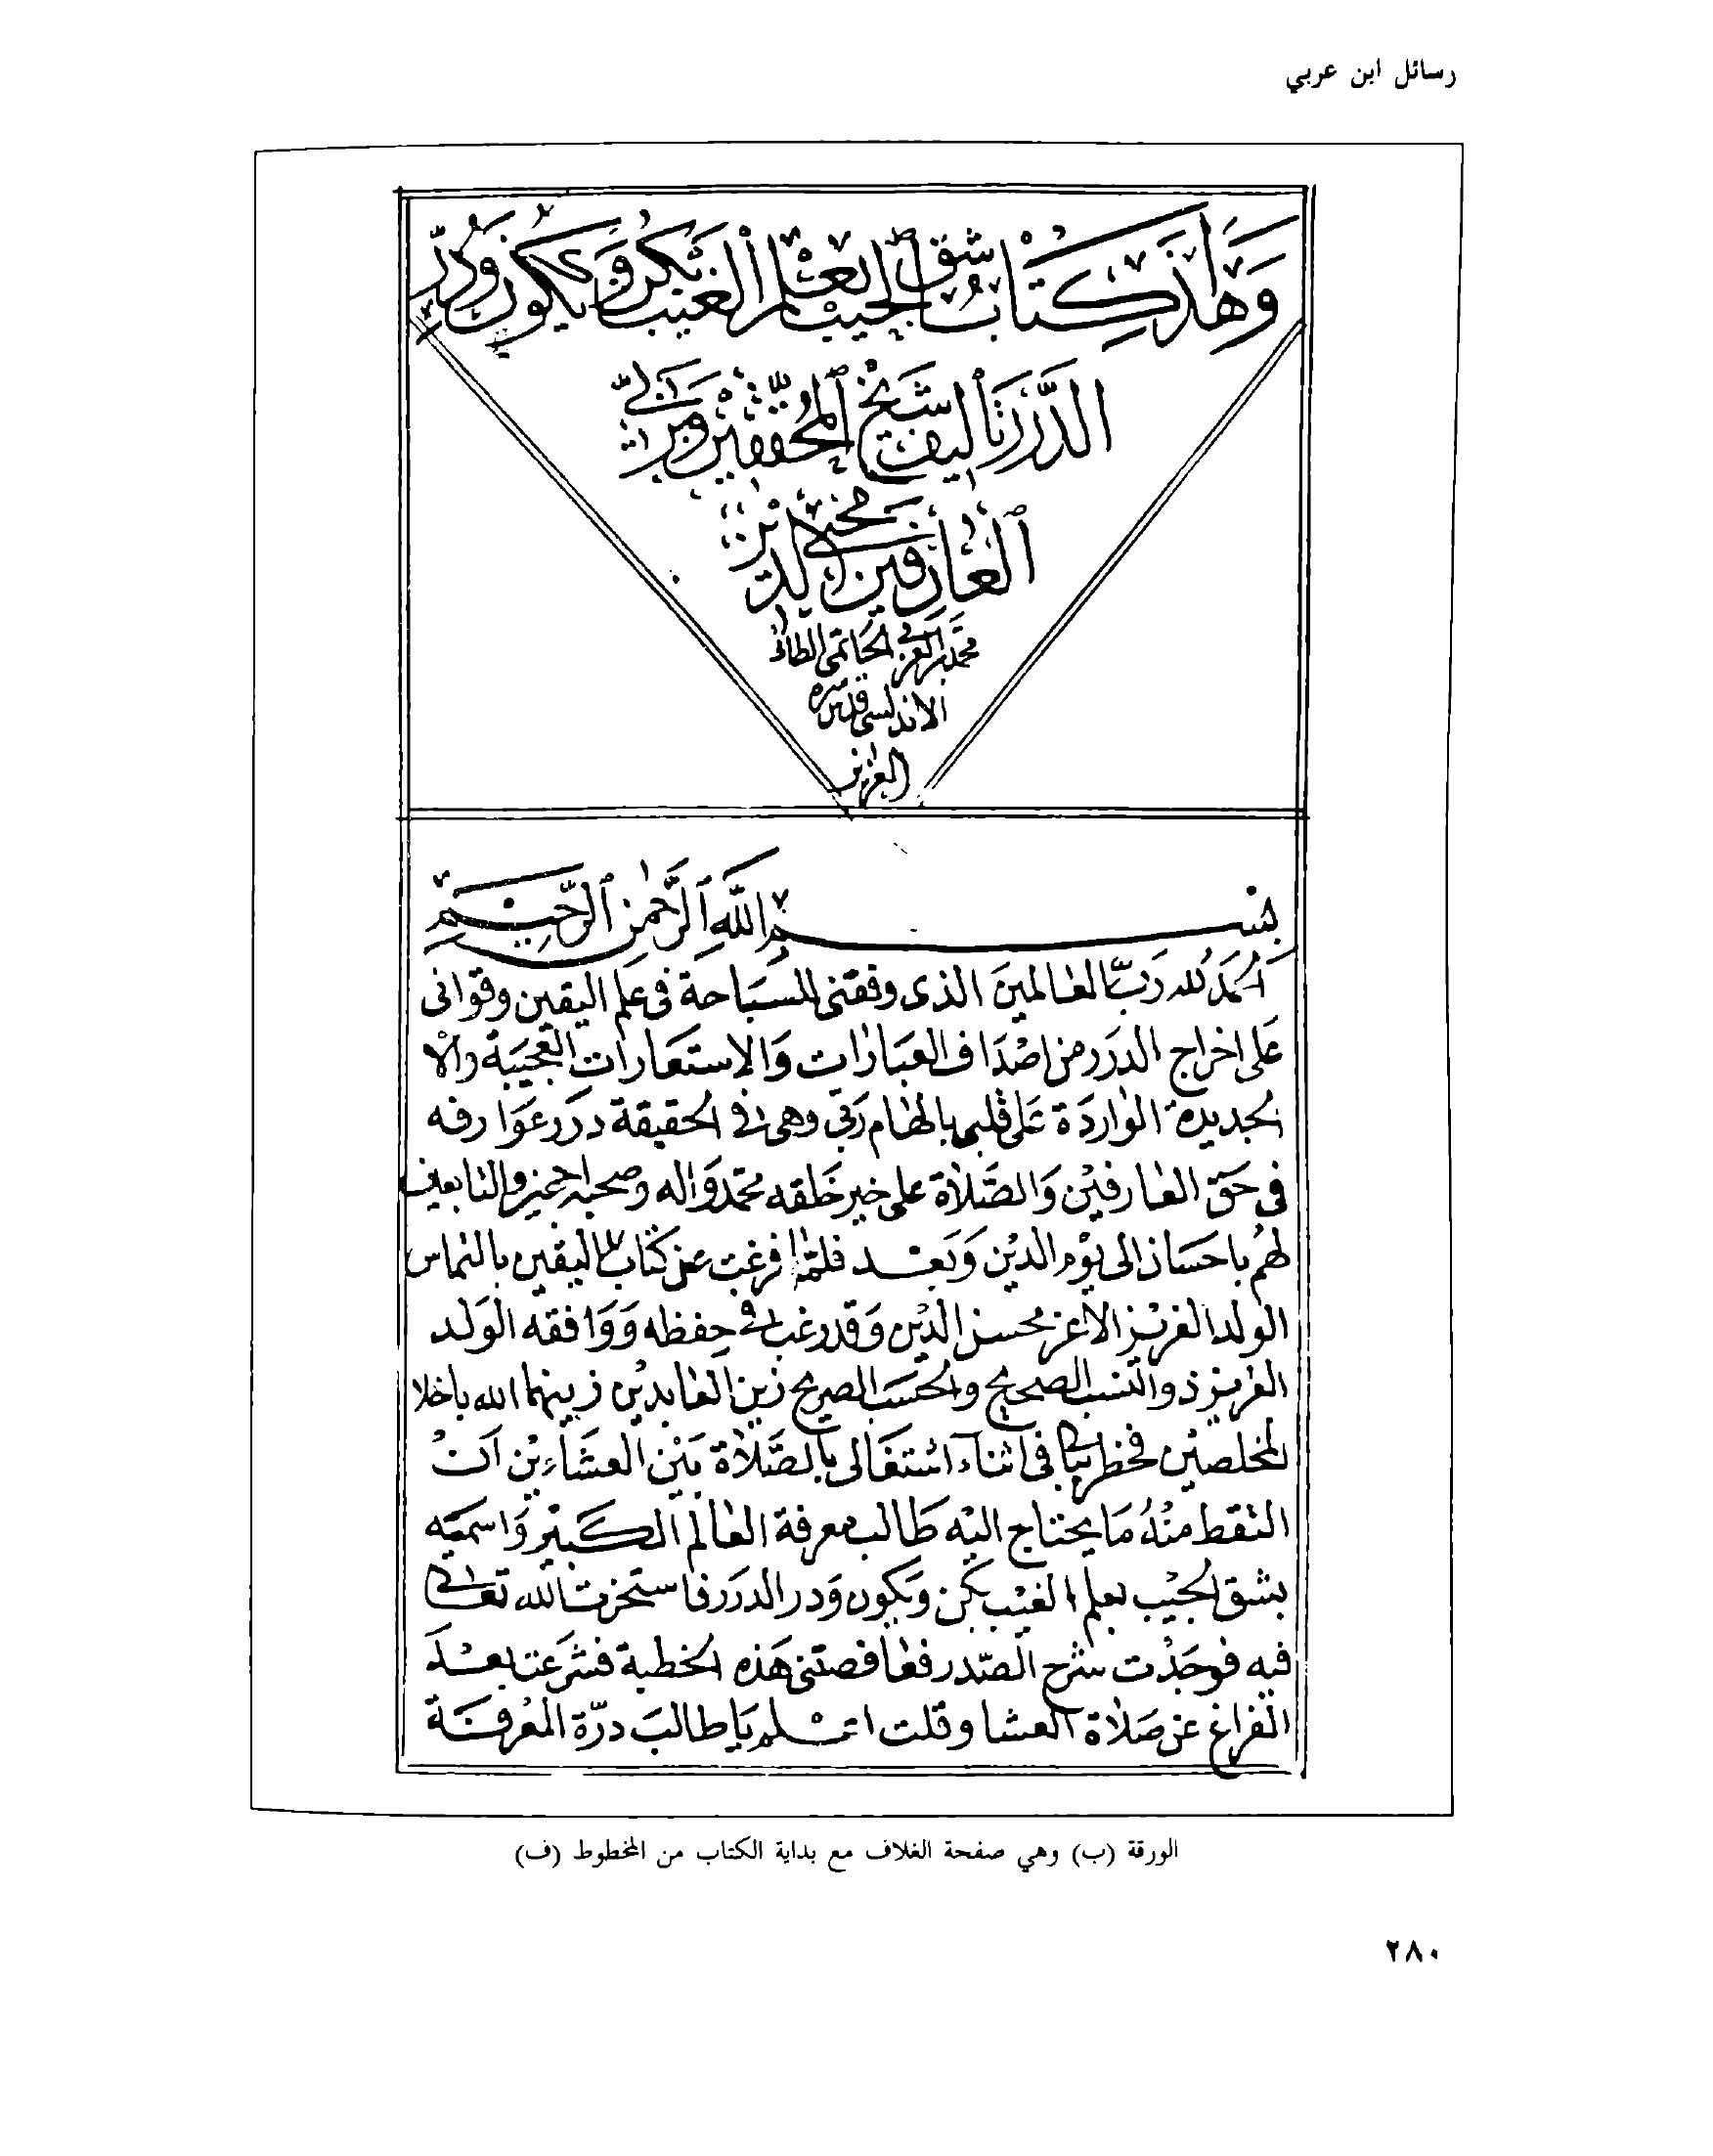 رسائل ابن عربي
وهذا كتاب شق الجيب بعلم الغيب بكن ويكون ودر
الدرر تأليف شيخ المحققين ومربي
العارفين محيي الدين
محمد بن العربي الحاتمي الطائي
الاندلسي قدس سره
العزيز
بسم الله الرحمن الرحيم
الحمد لله رب العالمين الذى وفقنى للسباحة فى علم اليقين وقوانى
على اخراج الدرر من اصداف العبارات والاستعارات العجيبة والا
الجديدة الواردة على قلبى بالهام ربى وهى فى الحقيقة درر عوارفه
فى حق العارفين والصلاة على خير خلقه محمد واله وصحبه اجمعين والتابعين
لهم باحسان الى يوم الدين وبعد فلما فرغت عن كتاب اليقين بالتماس
الولد العزيز الاعز محسن الدين وقد رغب فى حفظه ووافقه الولد
العزيز ذو النسب الصحيح والحسب الصريح زين العابدين زينهما الله باخلا
المخلصين فخطر ببالى فى اثناء اشتغالى بالصلاة بين العشاءين ان
التقط منه ما يحتاج اليه طالب معرفة العالم الكبير واسميه
بشق الجيب بعلم الغيب بكن ويكون ودر الدرر فاستخرت الله تعالى
فيه فوجدت شرح الصدر فعافصتنى هذه الخطبة فشرعت بعد
الفراغ عن صلاة العشا وقلت اعلم يا طالب درة المعرفة
الورقة (ب) وهي صفحة الغلاف مع بداية الكتاب من المخطوط (ف)
٢٨٠